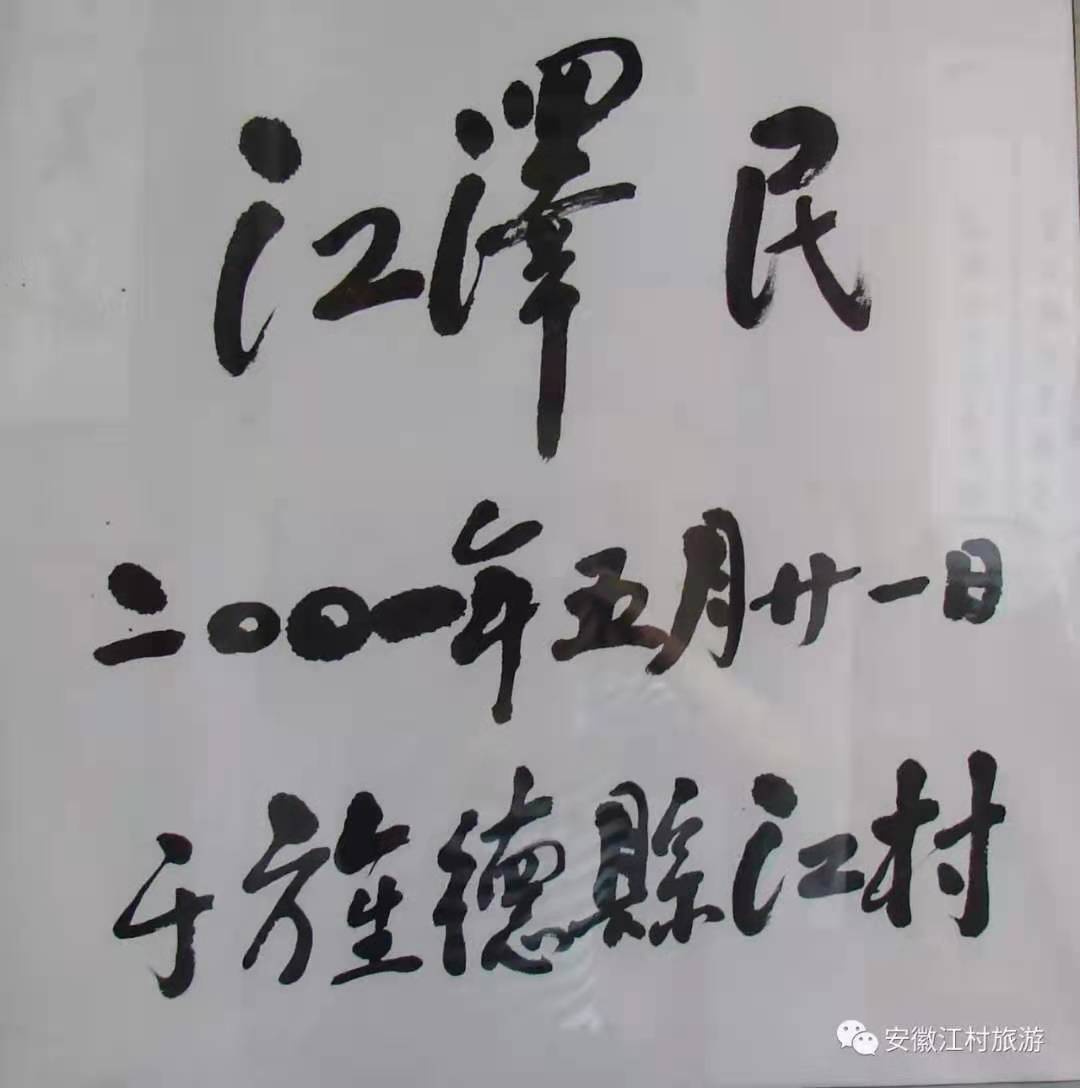 江澤民
二〇〇一年五月廿一日
于旌德縣江村
安徽江村旅游